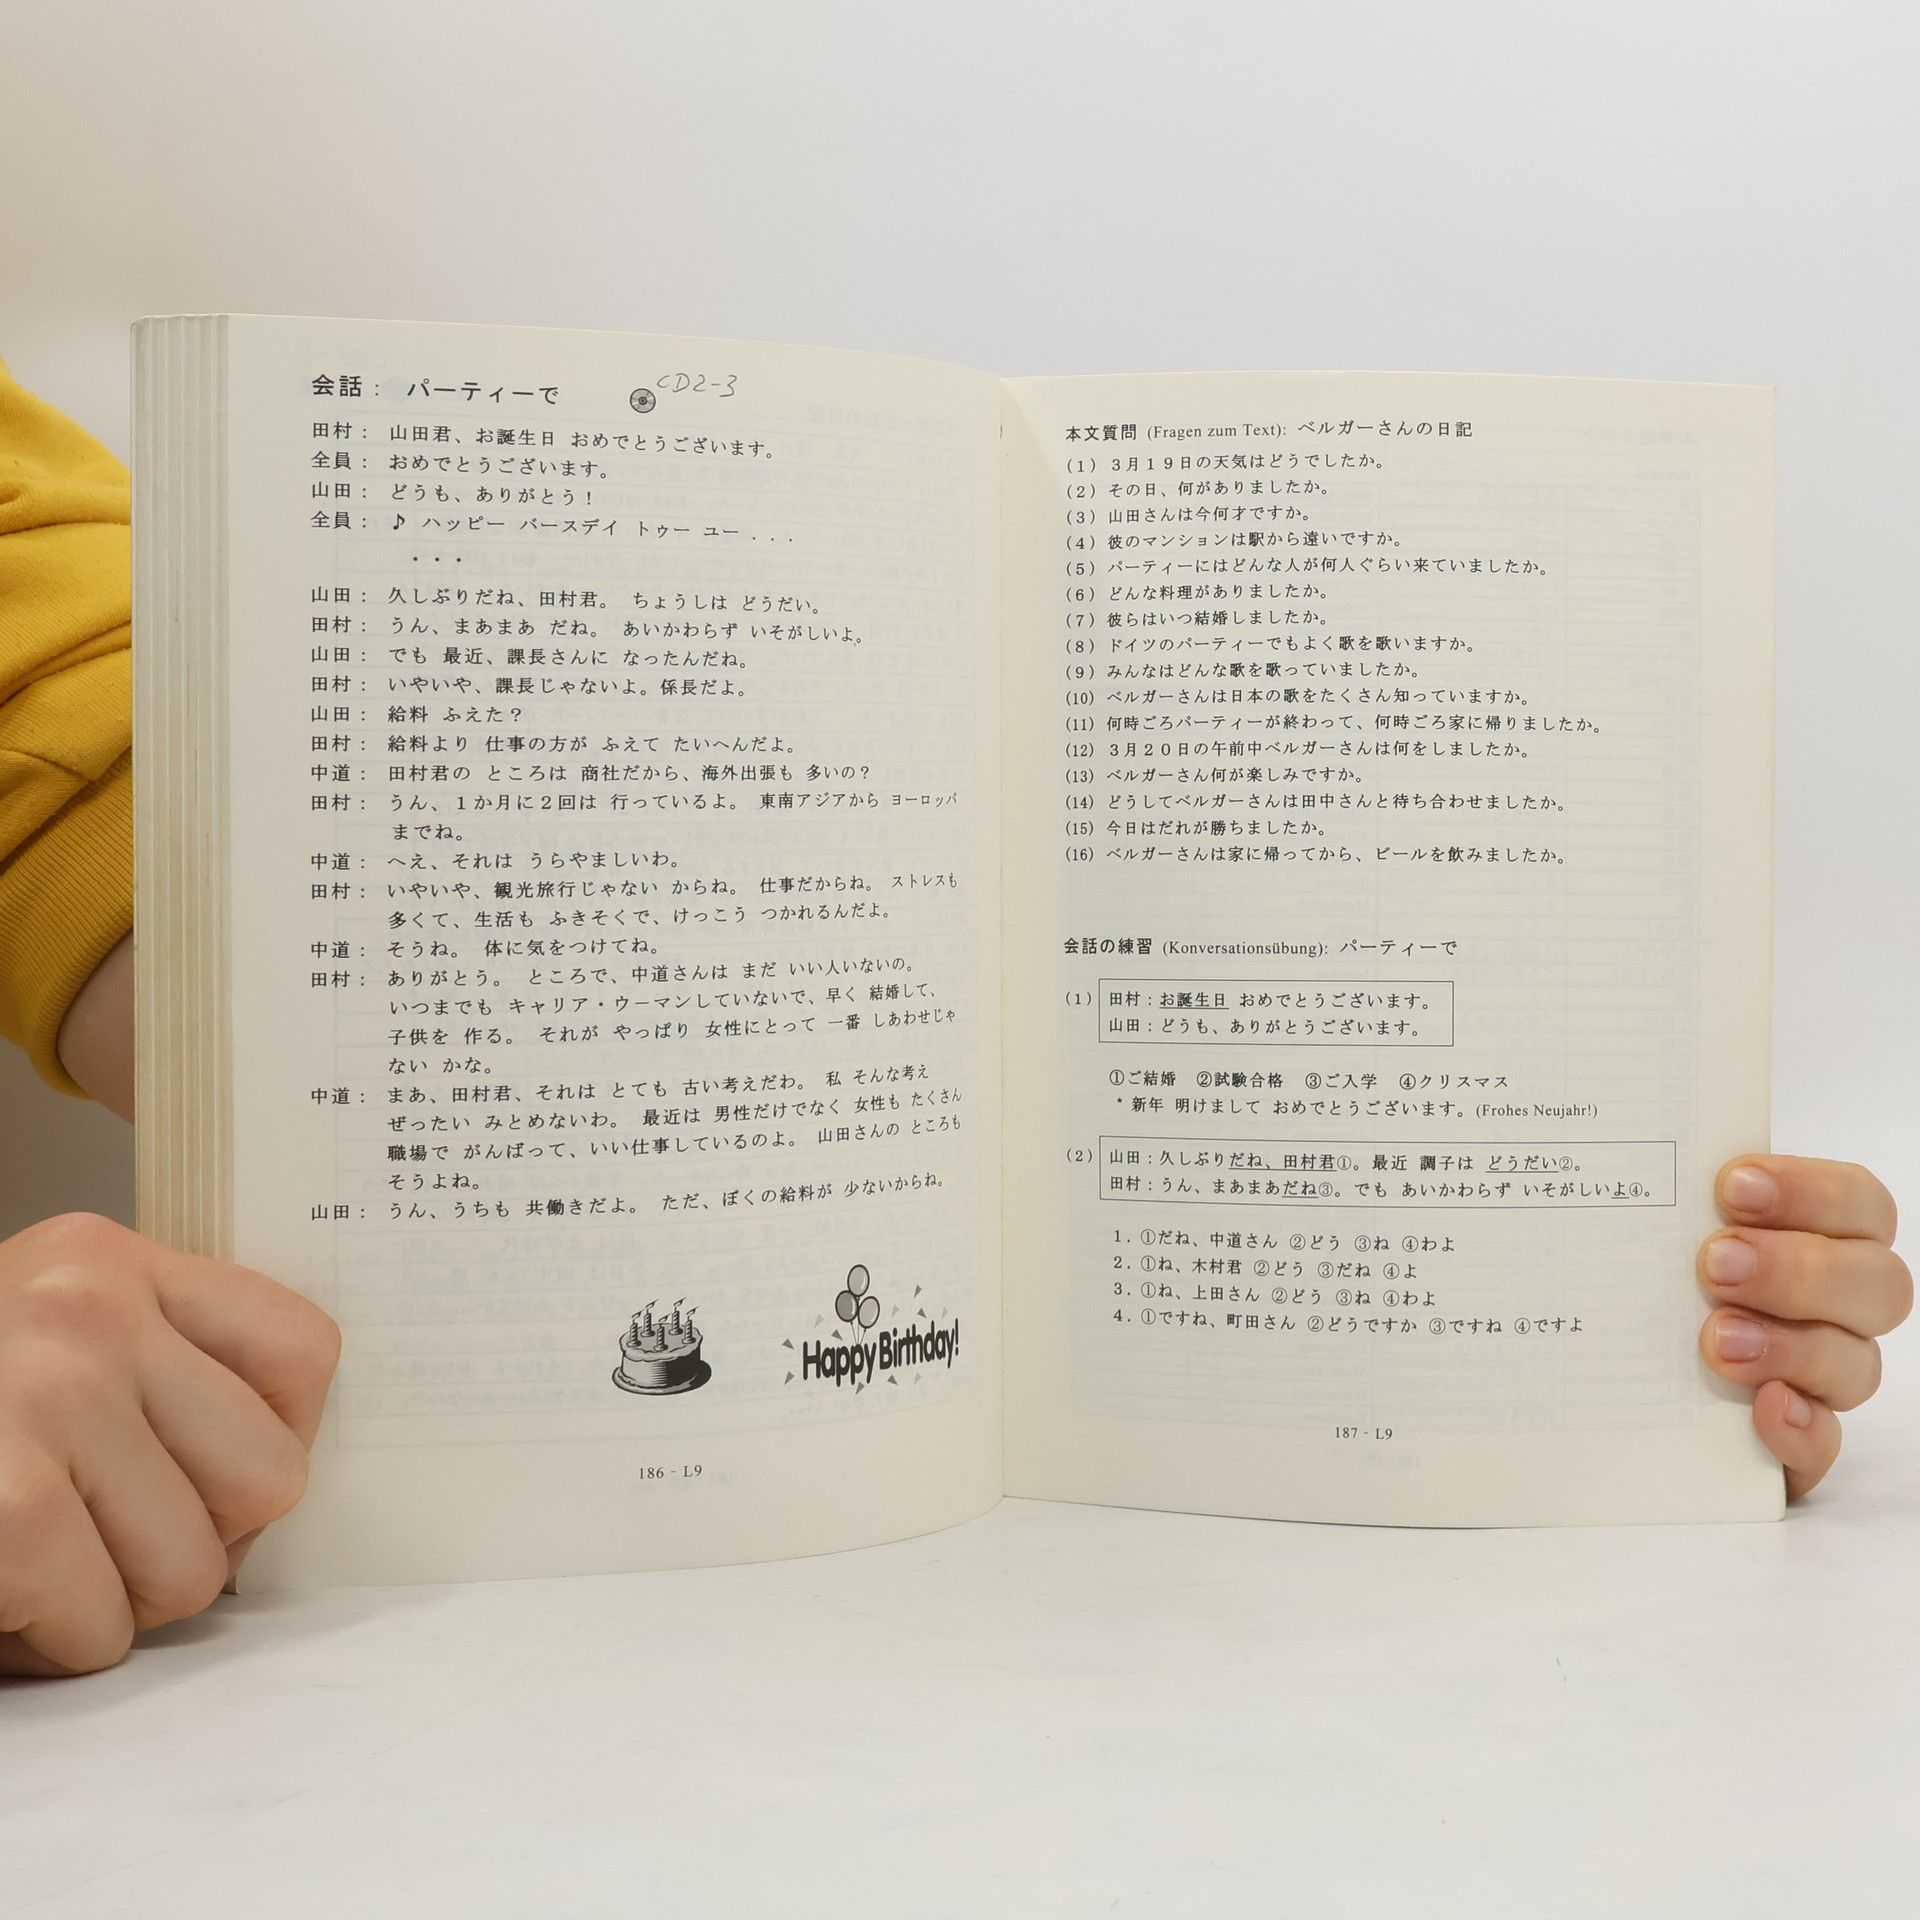 会話： パーティーで
CD2-3
田村： 山田君、お誕生日 おめでとうございます。
全員： おめでとうございます。
山田： どうも、ありがとう！
全員： ♪ ハッピー バースデイ トゥー ユー . . .
・・・
山田： 久しぶりだね、田村君。 ちょうしは どうだい。
田村： うん、まあまあ だね。 あいかわらず いそがしいよ。
山田： でも 最近、課長さんに なったんだね。
田村： いやいや、課長じゃないよ。係長だよ。
山田： 給料 ふえた？
田村： 給料より 仕事の方が ふえて たいへんだよ。
中道： 田村君の ところは 商社だから、海外出張も 多いの？
田村： うん、１か月に２回は 行っているよ。 東南アジアから ヨーロッパ
までね。
中道： へえ、それは うらやましいわ。
田村： いやいや、観光旅行じゃない からね。 仕事だからね。 ストレスも
多くて、生活も ふきそくで、けっこう つかれるんだよ。
中道： そうね。 体に気をつけてね。
田村： ありがとう。 ところで、中道さんは まだ いい人いないの。
いつまでも キャリア・ウーマンしていないで、早く 結婚して、
子供を 作る。 それが やっぱり 女性にとって 一番 しあわせじゃ
ない かな。
中道： まあ、田村君、それは とても 古い考えだわ。 私 そんな考え
ぜったい みとめないわ。 最近は 男性だけでなく 女性も たくさん
職場で がんばって、いい仕事しているのよ。 山田さんの ところも
そうよね。
山田： うん、うちも 共働きだよ。 ただ、ぼくの給料が 少ないからね。
Happy Birthday!
186 - L9
本文質問 (Fragen zum Text): ベルガーさんの日記
(1) ３月１９日の天気はどうでしたか。
(2) その日、何がありましたか。
(3) 山田さんは今何才ですか。
(4) 彼のマンションは駅から遠いですか。
(5) パーティーにはどんな人が何人ぐらい来ていましたか。
(6) どんな料理がありましたか。
(7) 彼らはいつ結婚しましたか。
(8) ドイツのパーティーでもよく歌を歌いますか。
(9) みんなはどんな歌を歌っていましたか。
(10) ベルガーさんは日本の歌をたくさん知っていますか。
(11) 何時ごろパーティーが終わって、何時ごろ家に帰りましたか。
(12) ３月２０日の午前中ベルガーさんは何をしましたか。
(13) ベルガーさん何が楽しみですか。
(14) どうしてベルガーさんは田中さんと待ち合わせましたか。
(15) 今日はだれが勝ちましたか。
(16) ベルガーさんは家に帰ってから、ビールを飲みましたか。
会話の練習 (Konversationsübung): パーティーで
(1) 田村：お誕生日 おめでとうございます。
山田：どうも、ありがとうございます。
①ご結婚 ②試験合格 ③ご入学 ④クリスマス
* 新年 明けまして おめでとうございます。(Frohes Neujahr!)
(2) 山田：久しぶりだね、田村君①。最近 調子は どうだい②。
田村：うん、まあまあだね③。でも あいかわらず いそがしいよ④。
1. ①だね、中道さん ②どう ③ね ④わよ
2. ①ね、木村君 ②どう ③だね ④よ
3. ①ね、上田さん ②どう ③ね ④わよ
4. ①ですね、町田さん ②どうですか ③ですね ④ですよ
187 - L9